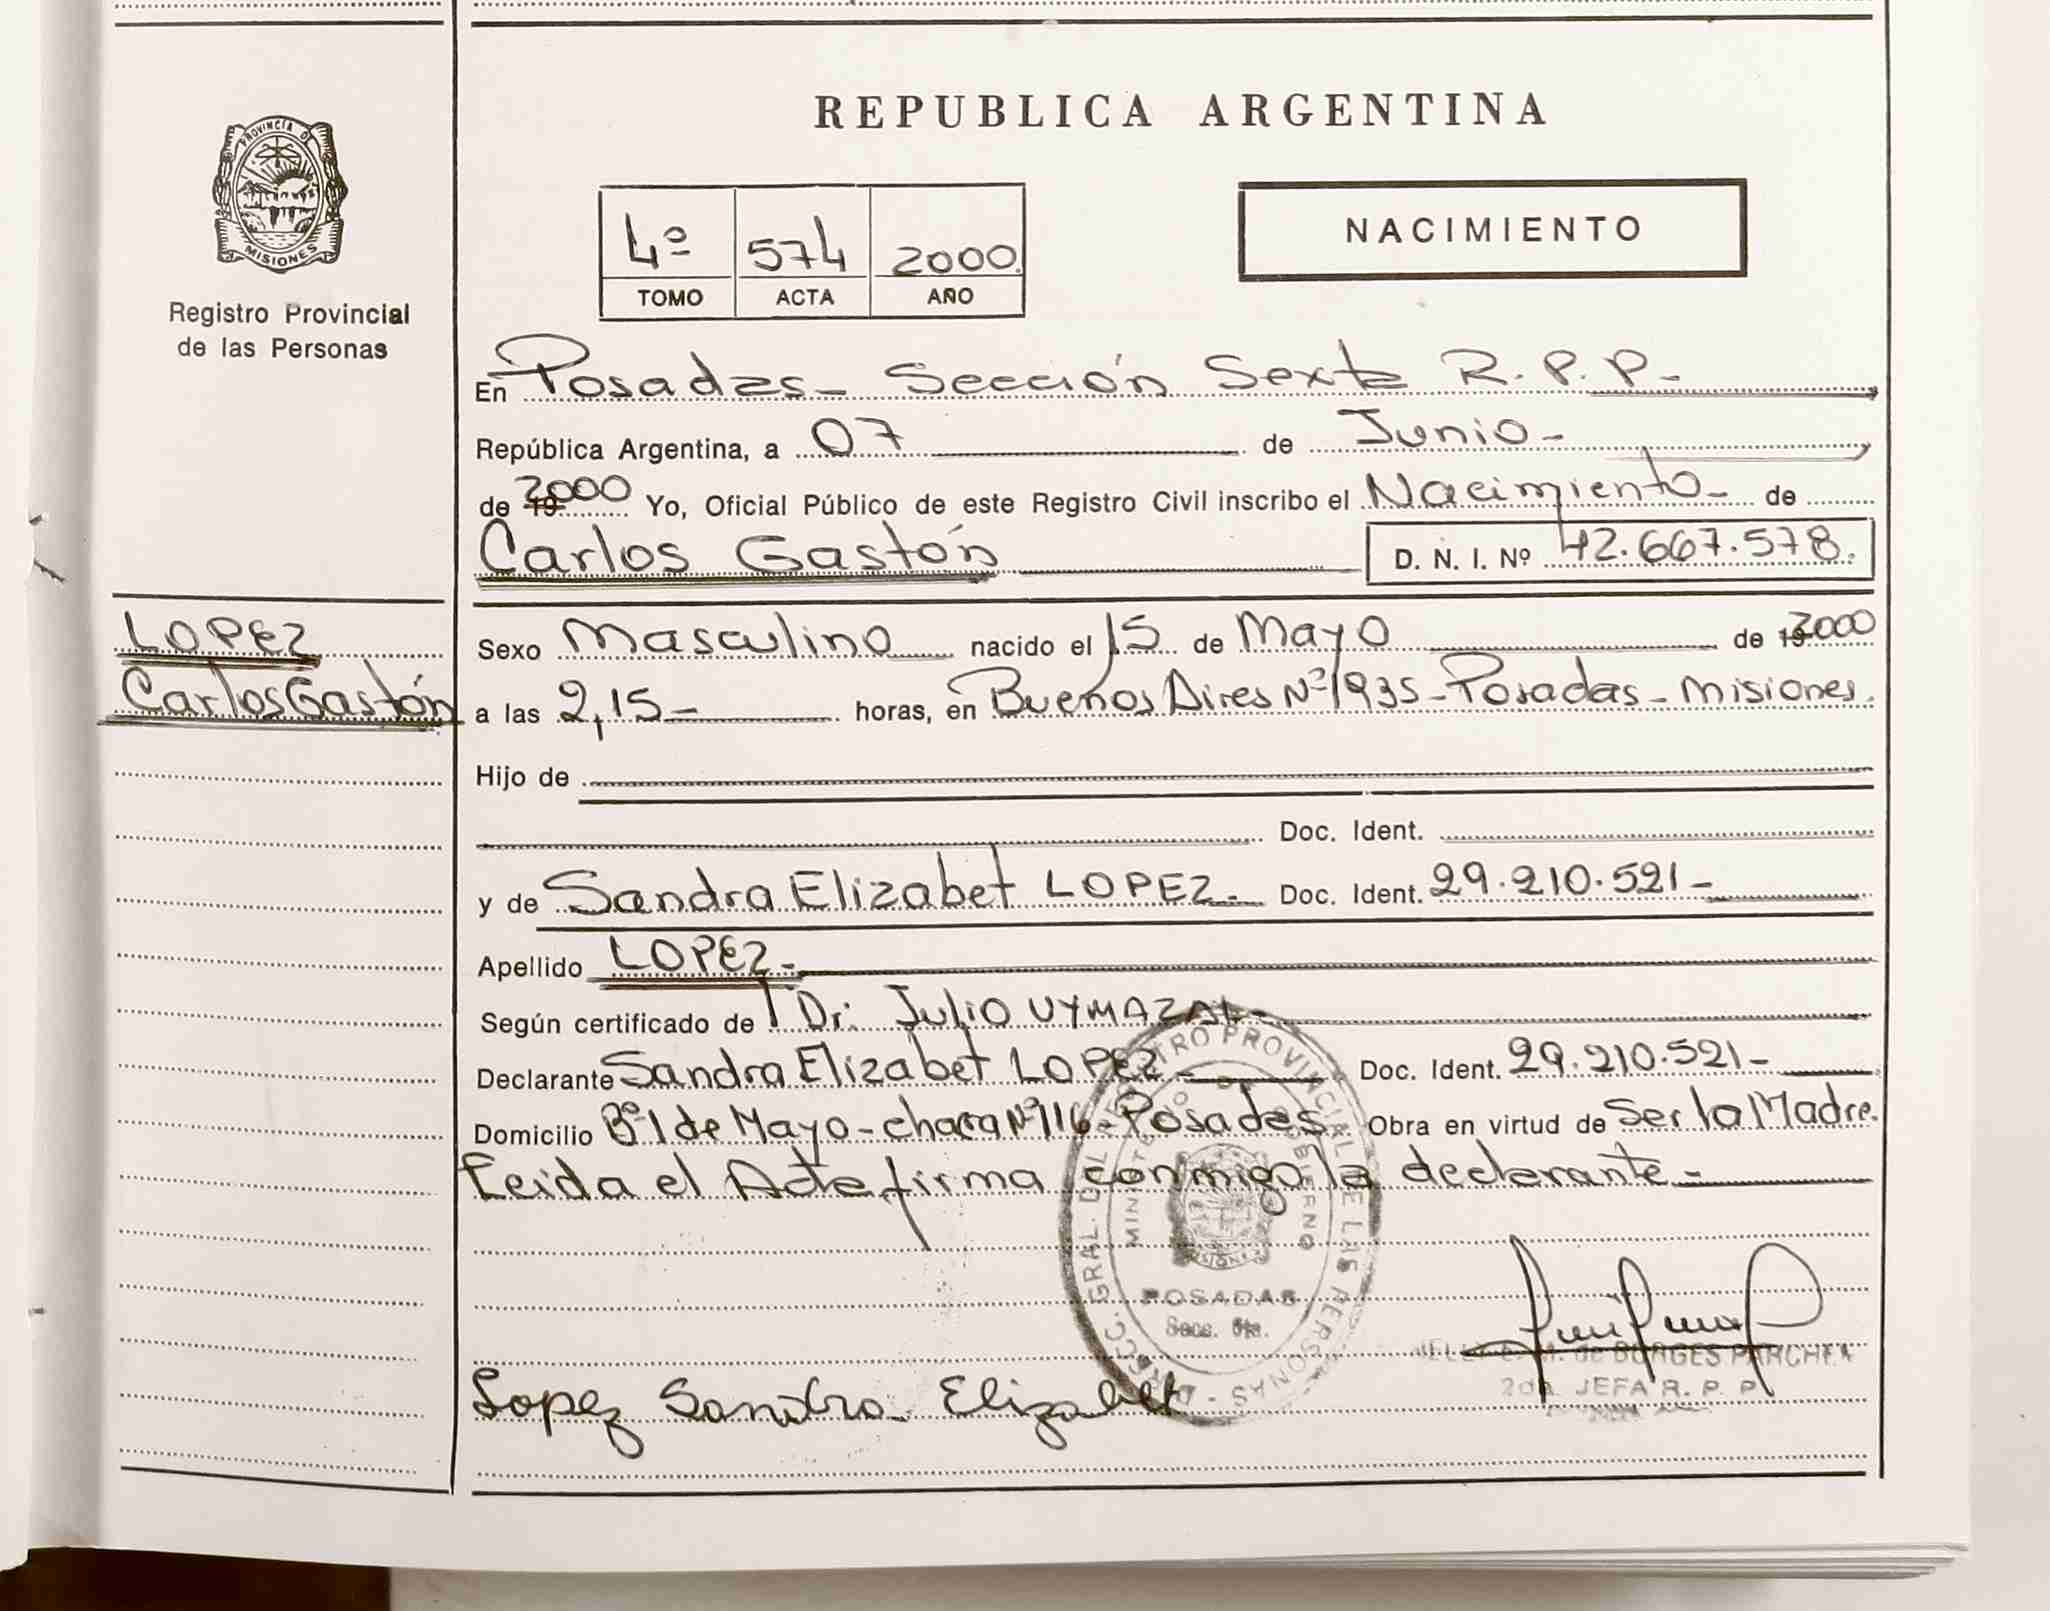 REPUBLICA ARGENTINA
PROVINCIA DE
MISIONES
Registro Provincial
de las Personas
4º 574 2000
TOMO ACTA AÑO
NACIMIENTO
En Posadas - Sección Sexta R.P.P-
República Argentina, a 07 de Junio-
de 19 2000 Yo, Oficial Público de este Registro Civil inscribo el Nacimiento- de
Carlos Gastón D. N. I. Nº 42.667.578.
LOPEZ
Carlos Gastón
Sexo Masculino nacido el 15 de Mayo de 19 2000
a las 2,15- horas, en Buenos Aires Nº 1935-Posadas-Misiones.
Hijo de
Doc. Ident.
y de Sandra Elizabet LOPEZ- Doc. Ident. 29.210.521-
Apellido LOPEZ-
Según certificado de Dr. Julio UYMAZAL-
Declarante Sandra Elizabet LOPEZ- Doc. Ident. 29.210.521-
Domicilio Bº 1 de Mayo-chacra Nº 116-Posadas. Obra en virtud de Ser la Madre.
Leida el Acta firma conmigo la declarante-
DIRECC. GRAL. DEL REGISTRO PROVINCIAL DE LAS PERSONAS
GOBIERNO
POSADAS
Secc. 6ta.
de BORGES PARCHEN
2da. JEFA R. P. P.
Lopez Sandra Elizabet